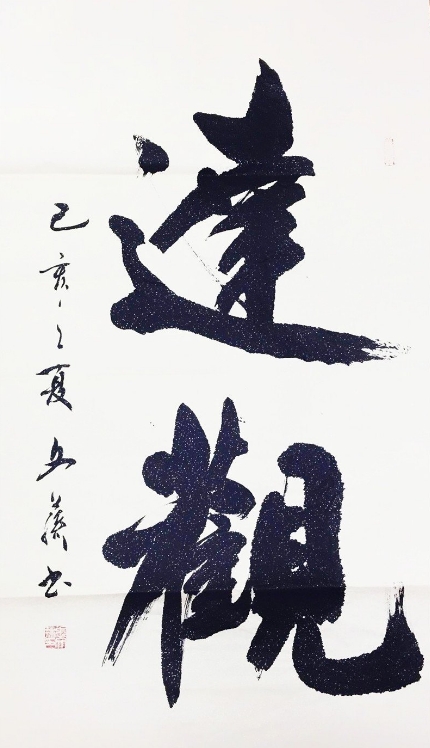 達觀
己亥之夏 書